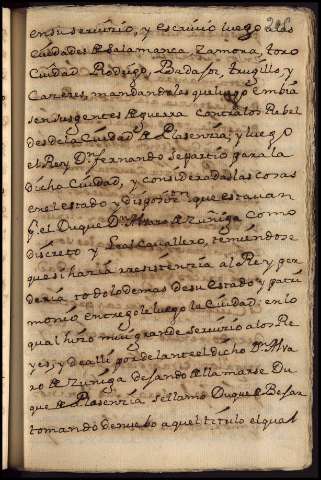 en su servicio, y escrivio luego a las
Ciudades de Salamanca, Zamora, toro
Ciudad Rodrigo, Badajoz, trugillo, y
Cazeres, mandandoles que luego embia
sen sus gentes de guerra contra los Rebel
des de la Ciudad de Plasenzia; y luego
el Rey Dn. fernando se partio para la
dicha Ciudad, y consideradas las cosas
en el estado y disposon. que estavan
por el Duque Dn. Alvaro de Zuñiga como
discreto y Leal Cavallero, temiendose
que si hazia rresistenzia al Rey, per
deria todo lo demas de su estado y patri
monio entregole luego la Ciudad: en lo
qual hizo mui grande servicio a los Re
yes; y de alli por delante el dicho Dn. Alva
ro de Zuñiga dejando de llamarse Du
que de Plasenzia se llamo Duque de Bejar
tomando de nuebo aquel titulo el qual